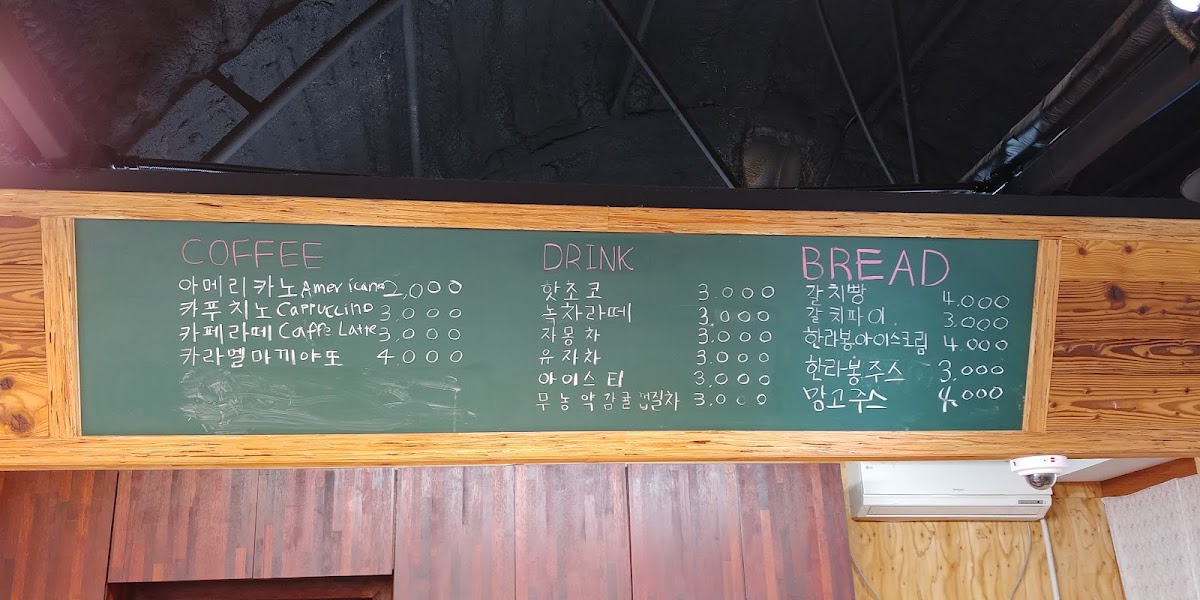 COFFEE
아메리카노 Americano 2,000
카푸치노 Cappuccino 3,000
카페라떼 Caffe Latte 3,000
카라멜마끼야또 4000
DRINK
핫초코 3.000
녹차라떼 3.000
자몽차 3.000
유자차 3.000
아이스티 3.000
무농약감귤껍질차 3.000
BREAD
갈치빵 4.000
갈치파이. 3.000
한라봉아이스크림 4.000
한라봉주스 3.000
망고주스 4.000
LG